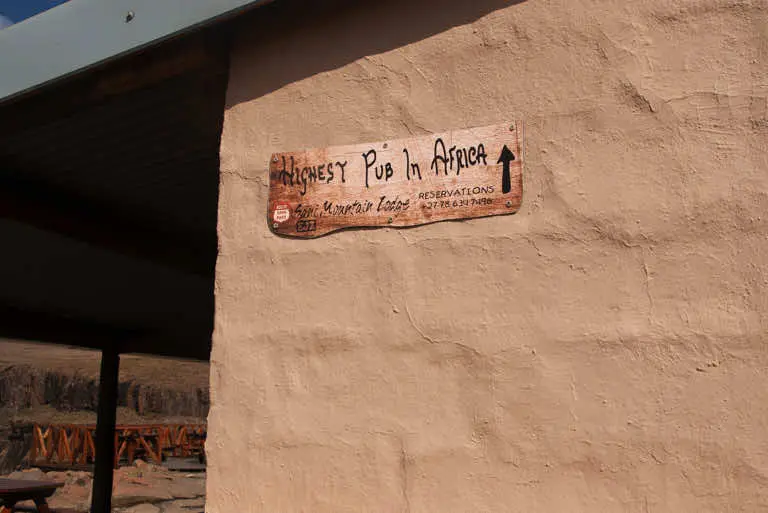 Highest Pub In Africa
Sani Mountain Lodge
RESERVATIONS
+27 78 634 7496